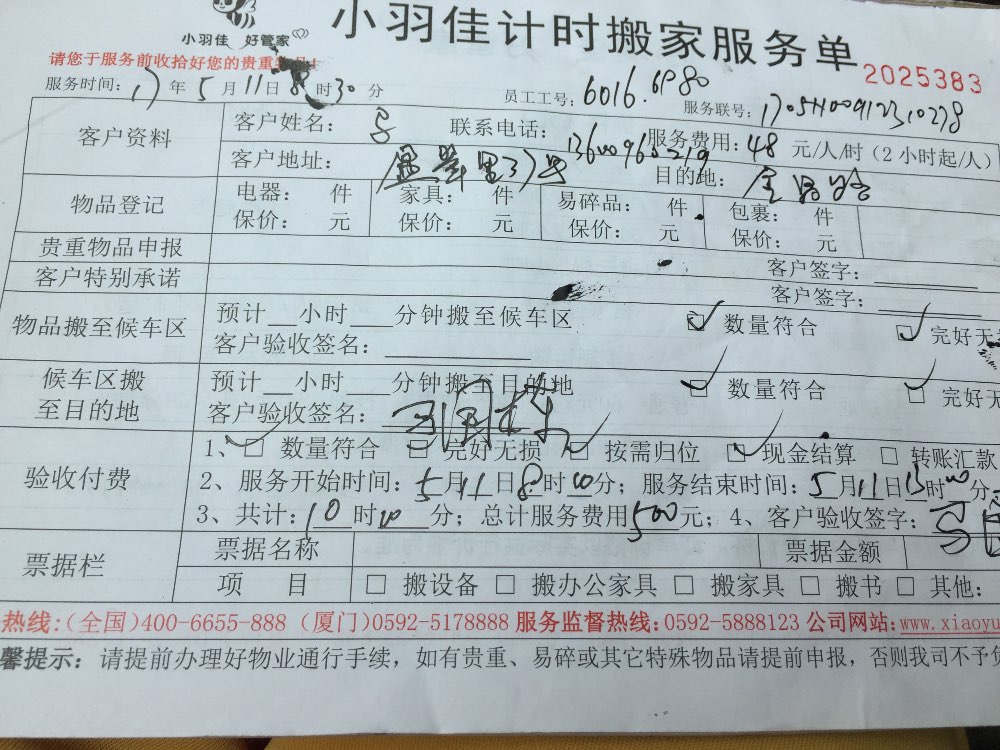 小羽佳 好管家
小羽佳计时搬家服务单
请您于服务前收拾好您的贵重物品
2025383
服务时间: 17 年 5 月 11 日 8 时 30 分 员工工号: 6016. 6980 服务联号:
客户资料 客户姓名: 联系电话: 13600960219 服务费用: 48 元/人/时(2小时起/人)
客户地址: 目的地:
物品登记 电器: 件 家具: 件 易碎品: 件 包裹: 件
保价: 元 保价: 元 保价: 元 保价: 元
贵重物品申报 客户签字:
客户特别承诺 客户签字:
物品搬至候车区 预计 小时 分钟搬至候车区 数量符合 完好无
客户验收签名:
候车区搬至目的地 预计 小时 分钟搬至目的地 数量符合 完好无
客户验收签名:
验收付费 1、 数量符合 完好无损 按需归位 现金结算 转账汇款
2、服务开始时间: 5月11日8时10分; 服务结束时间: 5月11日13时00分
3、共计: 10时10分; 总计服务费用500元; 4、客户验收签字:
票据栏 票据名称 票据金额
项 目 搬设备 搬办公家具 搬家具 搬书 其他:
热线:(全国)400-6655-888 (厦门)0592-5178888 服务监督热线:0592-5888123 公司网站:www.xiaoyu
馨提示: 请提前办理好物业通行手续,如有贵重、易碎或其它特殊物品请提前申报,否则我司不予